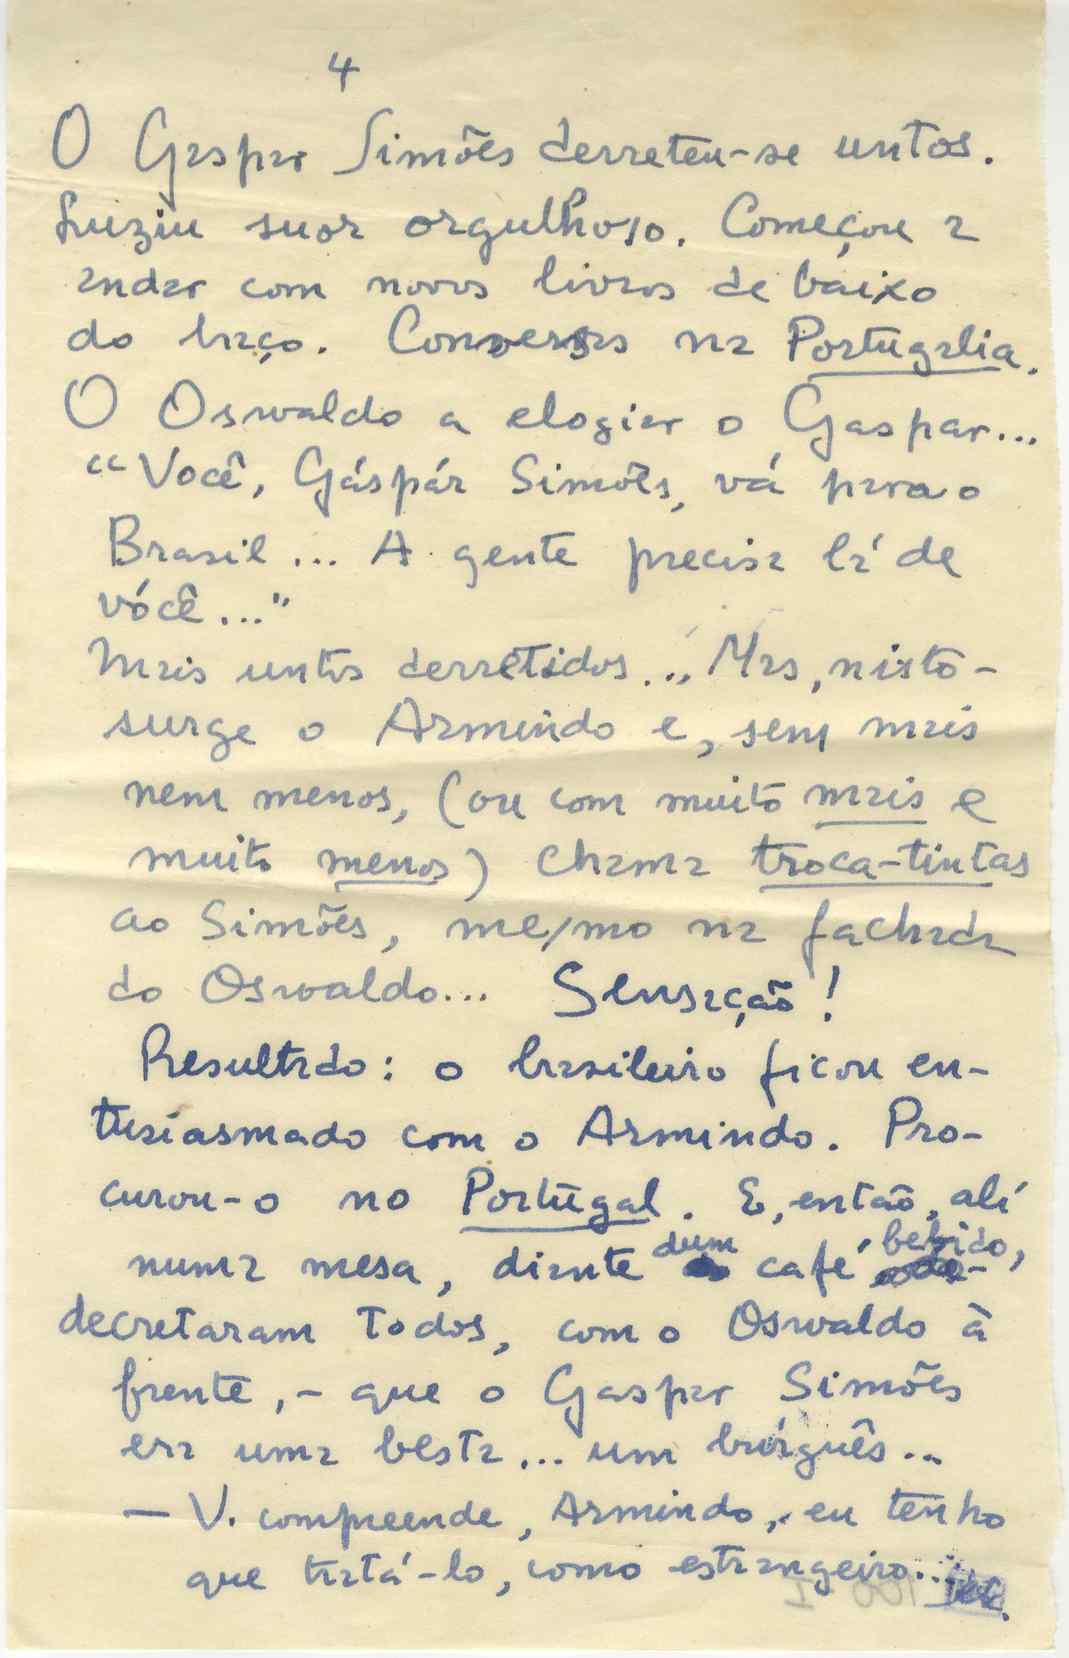 4
O Gaspar Simões derreteu-se untos.
Luziu suor orgulhoso. Começou a
andar com novos livros debaixo
do braço. Conversas na Portugalia.
O Oswaldo a elogiar o Gaspar...
"Você, Gáspár Simões, vá para o
Brasil... A gente precisa lá de
vócê..."
Mais untos derretidos... Mas, nisto-
surge o Armindo e, sem mais
nem menos, (ou com muito mais e
muito menos) chama troca-tintas
ao Simões, mesmo na fachada
do Oswaldo... Sensação!
Resultado: o brasileiro ficou en-
tusiasmado com o Armindo. Pro-
curou-o no Portugal. E, então, alí
numa mesa, diante dum café bebido,
decretaram todos, com o Oswaldo à
frente, - que o Gaspar Simões
era uma besta... um búrguês...
— V. compreende, Armindo, eu tenho
que tratá-lo, como estrangeiro...